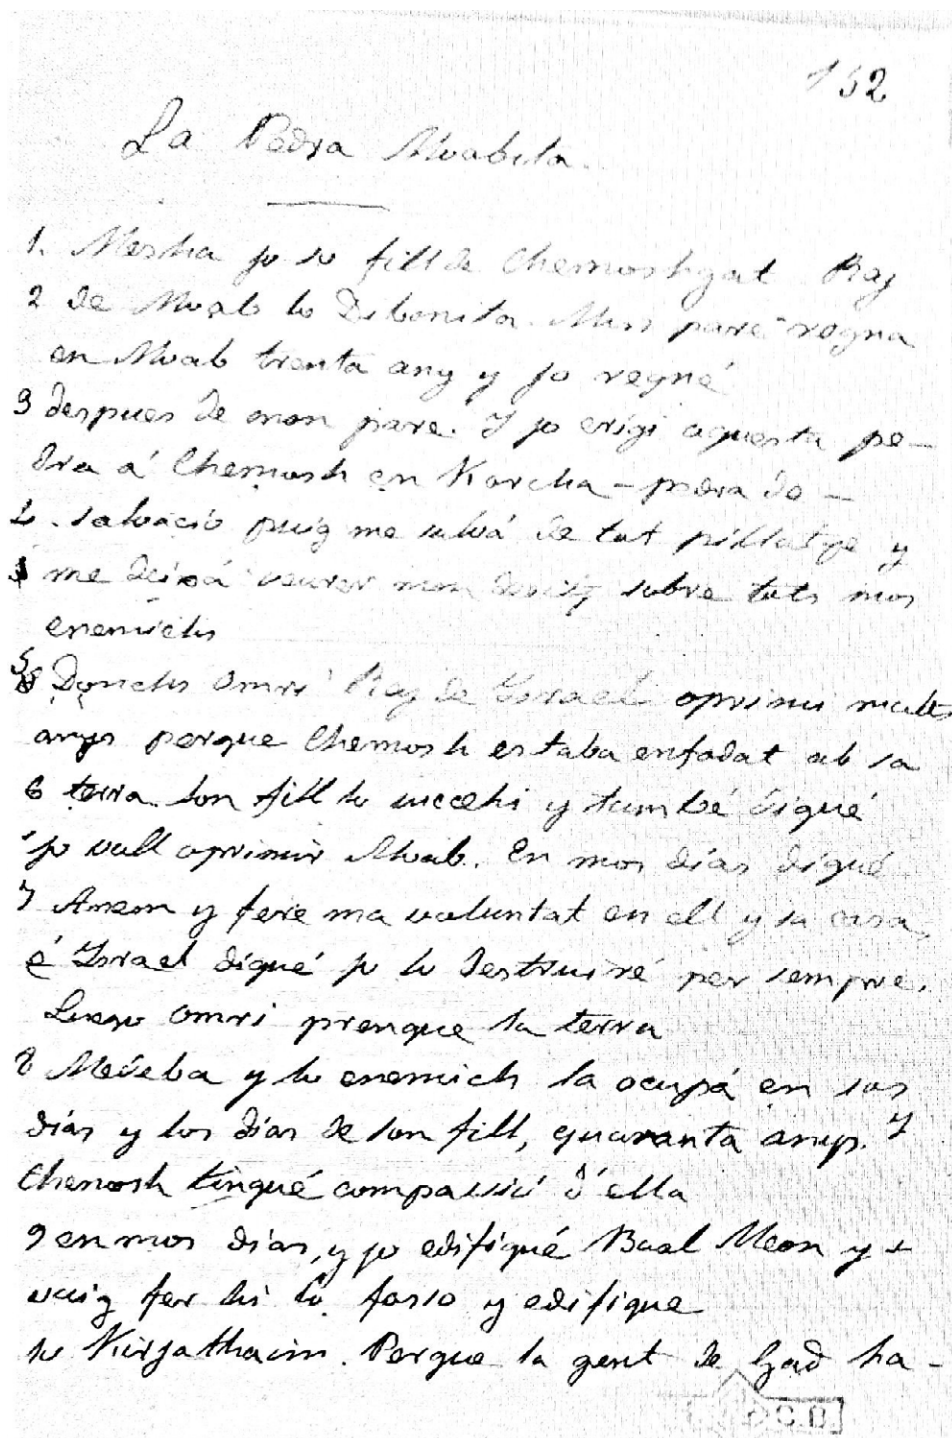 152
La Pedra Moabita.
1. Mesha jo so fill de Chemoshgat Rey
2 de Moab lo Dibonita. Mon pare regna
en Moab trenta any y jo regné
3 despues de mon pare. Y jo erigi aquesta pe-
dra á Chemosh en Korcha - pedra de -
4. salvació puig me salvá de tot pillatge y
me deixá veurer mon desitg sobre tots mos
enemichs
5 Donchs Omri Rey de Israel oprimi molts
anys perque Chemosh estaba enfadat ab sa
6 terra. Son fill lo succehi y també digué
jo vull oprimir Moab. En mos días digué
7 Anem y fere ma voluntat en ell y sa casa
é Israel digué jo lo destruiré per sempre.
Luego Omri prengue la terra
8 Medeba y lo enemich la ocupá en sos
días y los días de son fill, quaranta anys. Y
Chemosh tingué compassió d'ella
9 en mos días, y jo edifiqué Baal Meon y
vaig fer hi lo foso y edifique
lo Kirjathaim. Perque la gent de Gad ha-